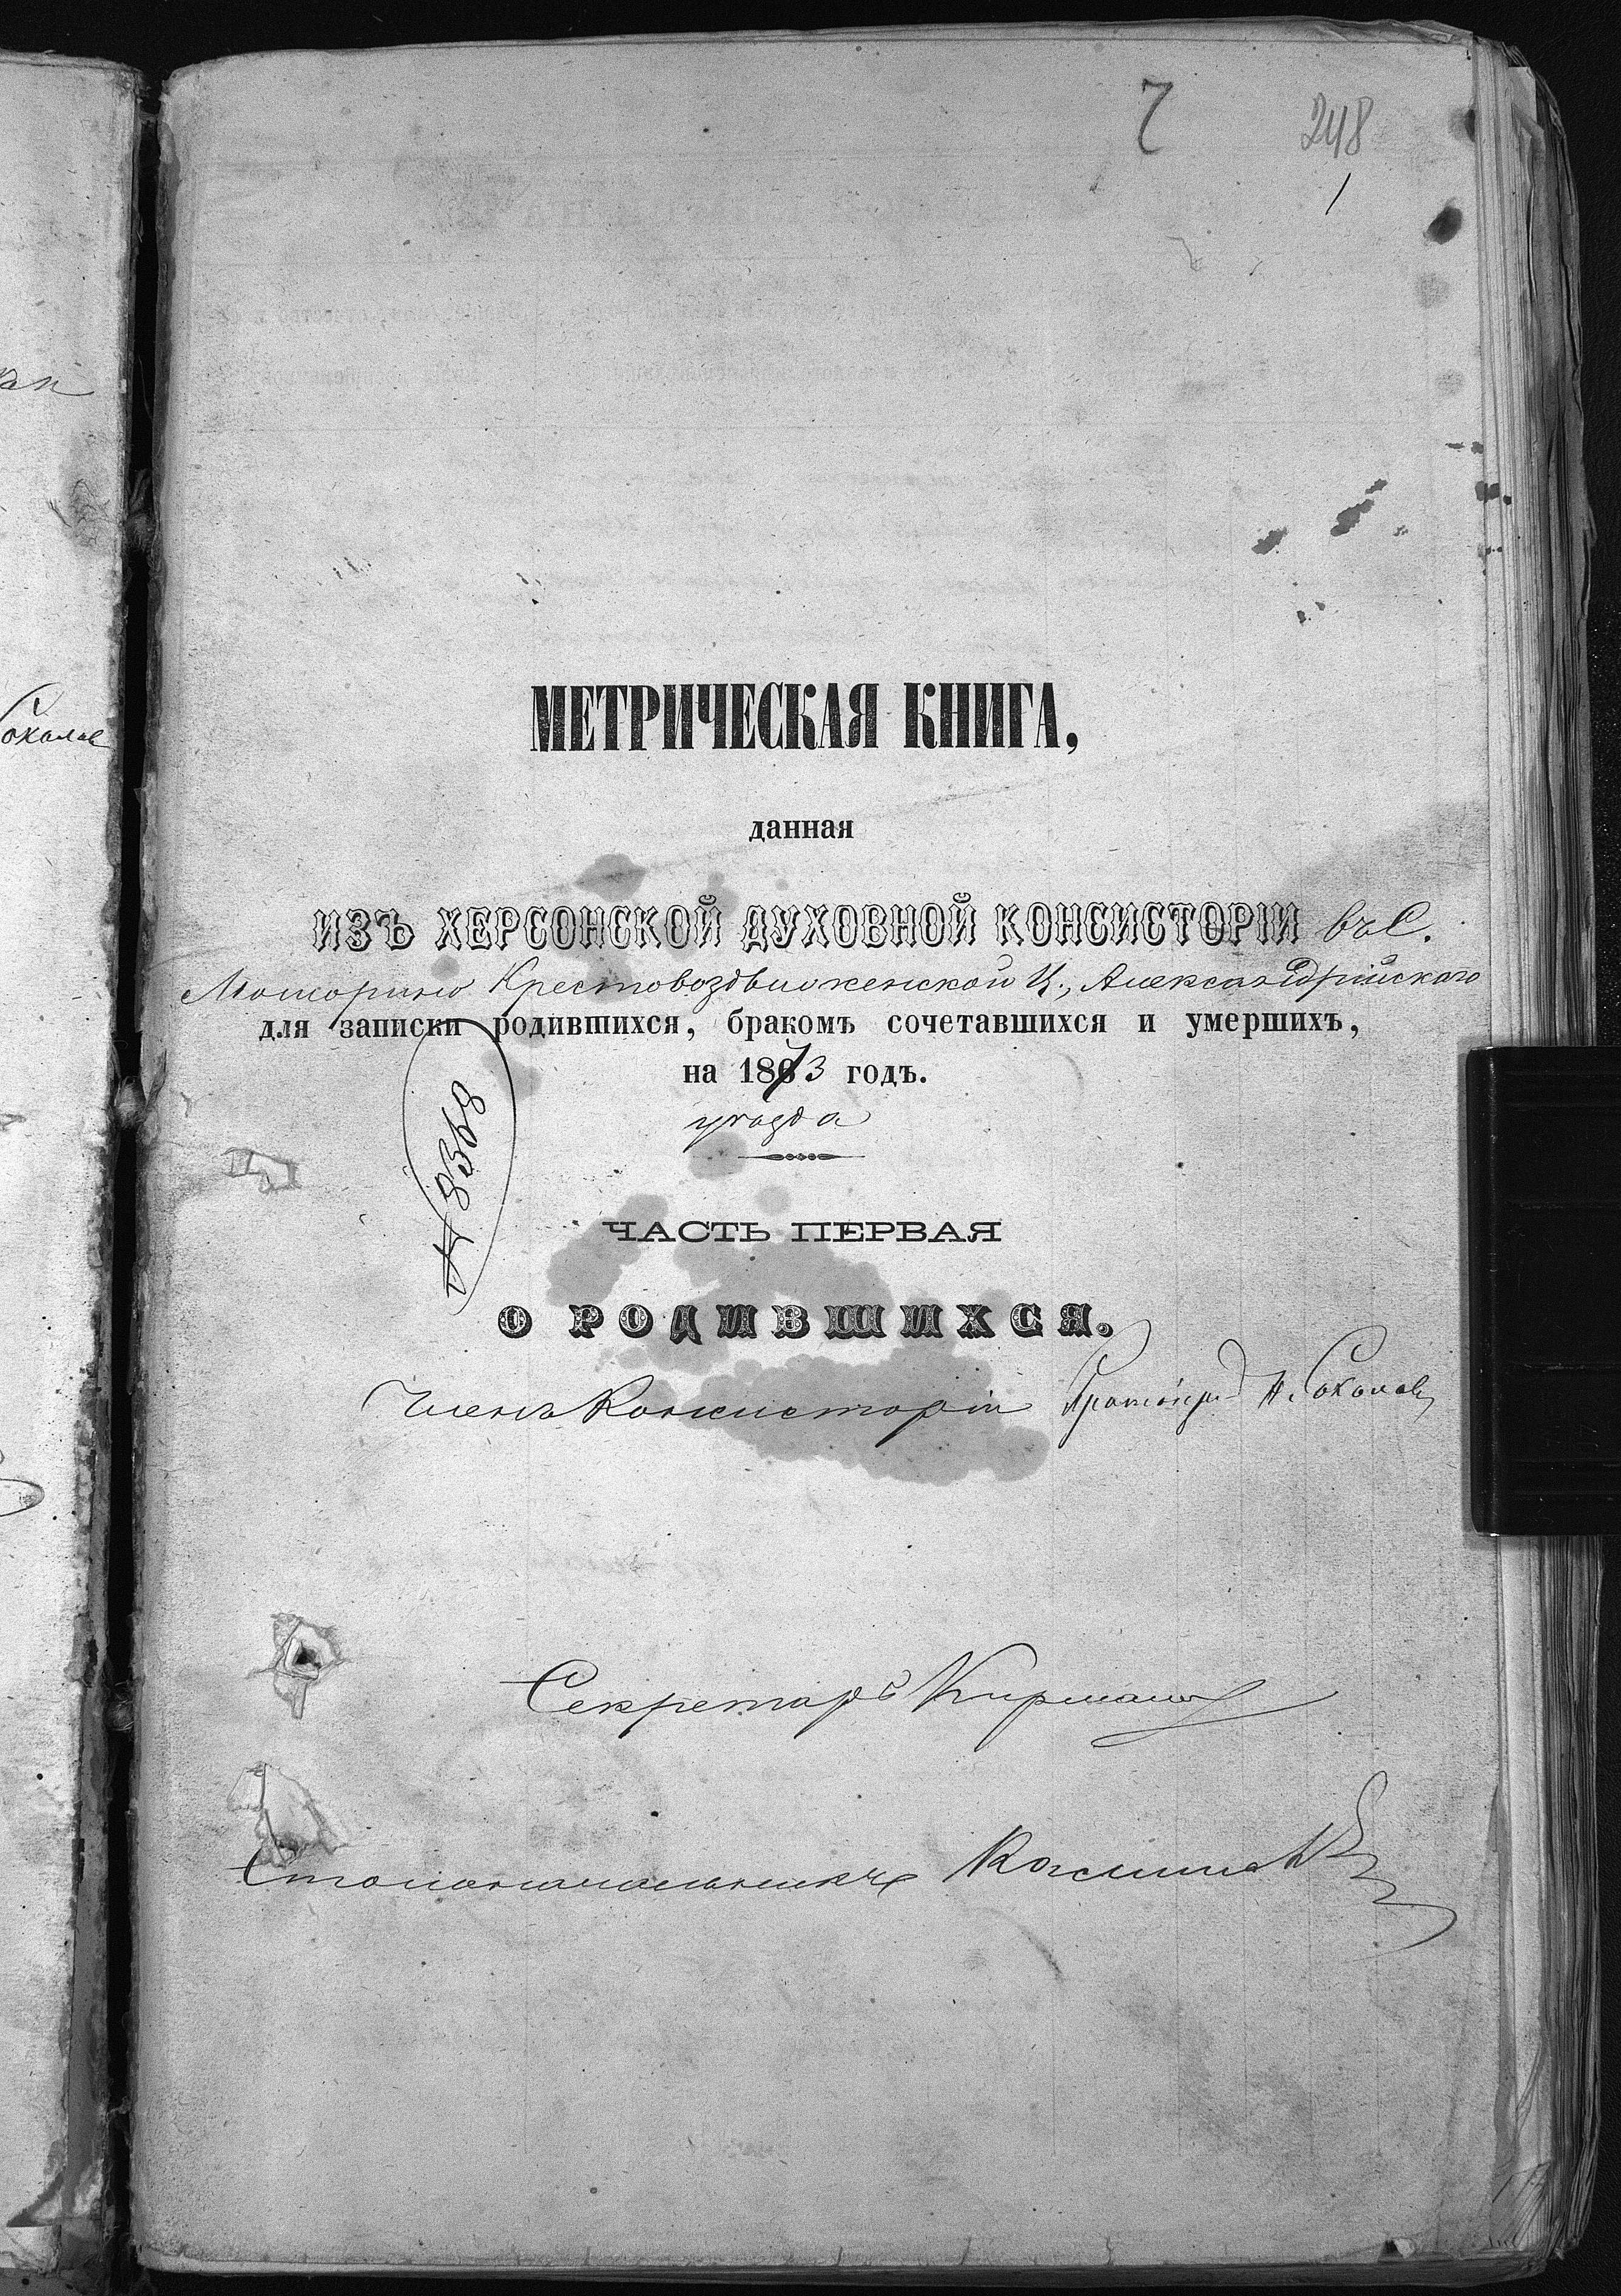 7
248
1
МЕТРИЧЕСКАЯ КНИГА,
данная
ИЗЪ ХЕРСОНСКОЙ ДУХОВНОЙ КОНСИСТОРІИ въ С.
Моторино Крестовоздвиженской Ц., Александрійскаго
для записки родившихся, бракомъ сочетавшихся и умершихъ,
на 1873 годъ.
уѣзда
№ 8368
ЧАСТЬ ПЕРВАЯ
О РОДИВШИХСЯ.
Членъ Консисторіи Протоіерей Н. Соколовъ
Секретарь
Столоначальникъ